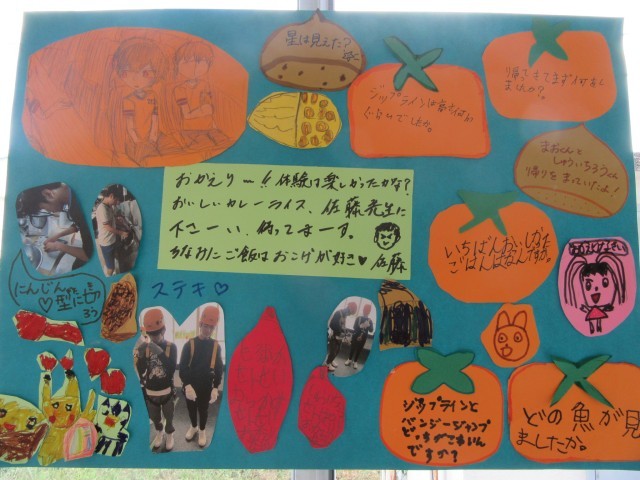 星は見えた?
ジップラインは高さは何m
ぐらいでしたか。
帰ってきてまず何をし
ましたか?。
まおくんと
しゅういちろうくん
帰りをまっていたよ!
おかえりー!!体験は楽しかったかな?
おいしいカレーライス、佐藤先生に
下さーい、待ってまーす。
ちなみにご飯はおこげが好き♥ 佐藤
いちばんおいしかった
ごはんはなんですか。
にんじん
♡型に切
ろう
ステキ♡
ジップラインと
バンジージャンプ
どっちがこわいん
ですか?
どの魚が見
ましたか。